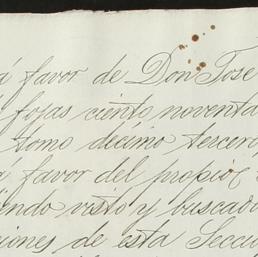 á favor de Don Jose
fojas ciento noventa
tomo décimo tercero
á favor del propio
visto y buscado
ciones de esta Secci